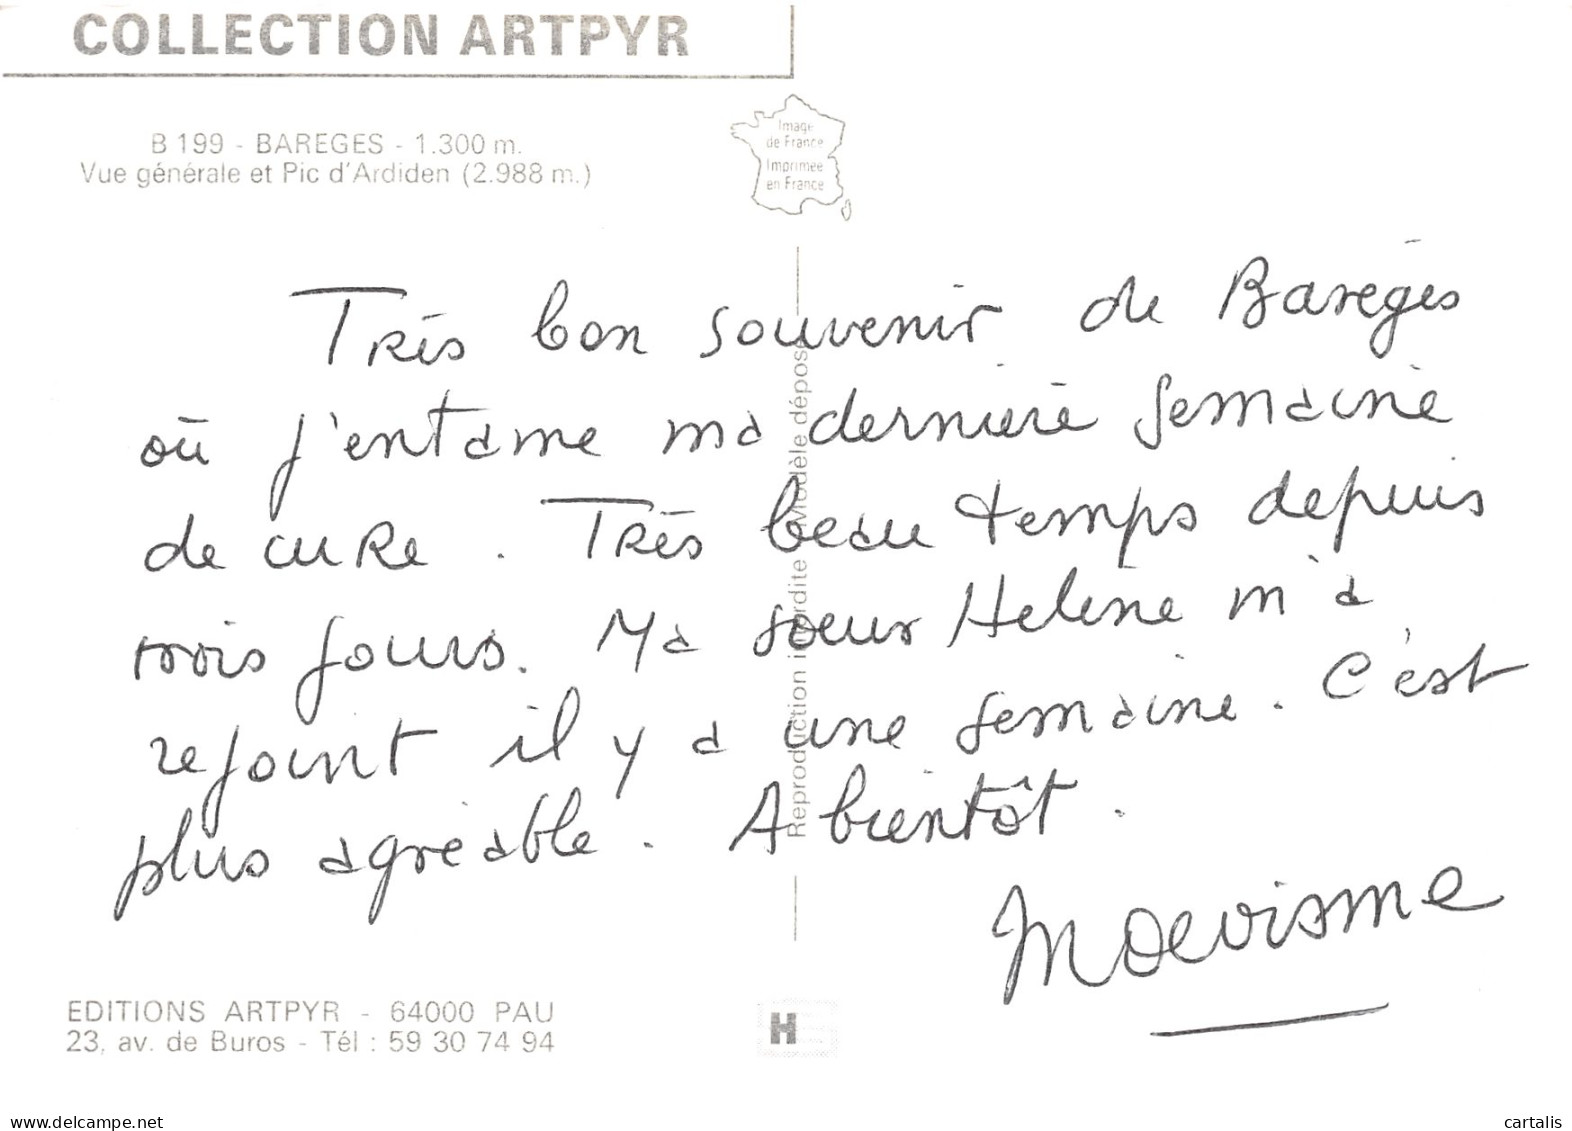 COLLECTION ARTPYR
B 199 - BAREGES - 1.300 m.
Vue générale et Pic d'Ardiden (2.988 m.)
Image
de France
Imprimée
en France
Très bon souvenir de Barèges
où j'entame ma dernière semaine
de cure. Très beau temps depuis
trois jours. Ma soeur Hélène m'a
rejoint il y a une semaine. C'est
plus agréable. A bientôt.
Reproduction interdite Modèle déposé
EDITIONS ARTPYR - 64000 PAU
23, av. de Buros - Tél : 59 30 74 94
H
www.delcampe.net
cartalis